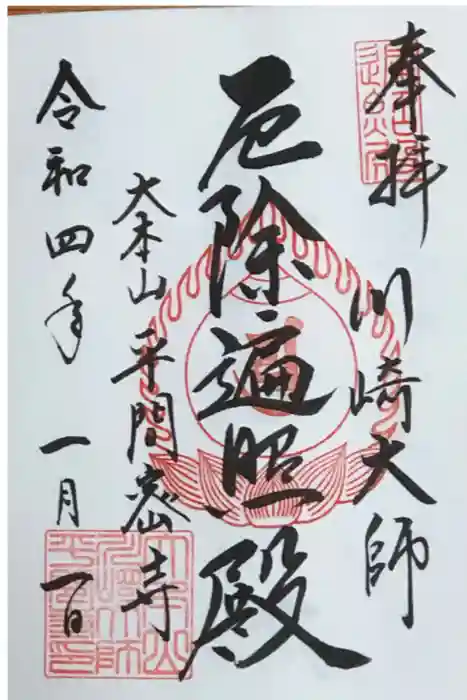 奉拝
川崎大師
厄除遍照殿
大本山平間寺
令和四年一月一日